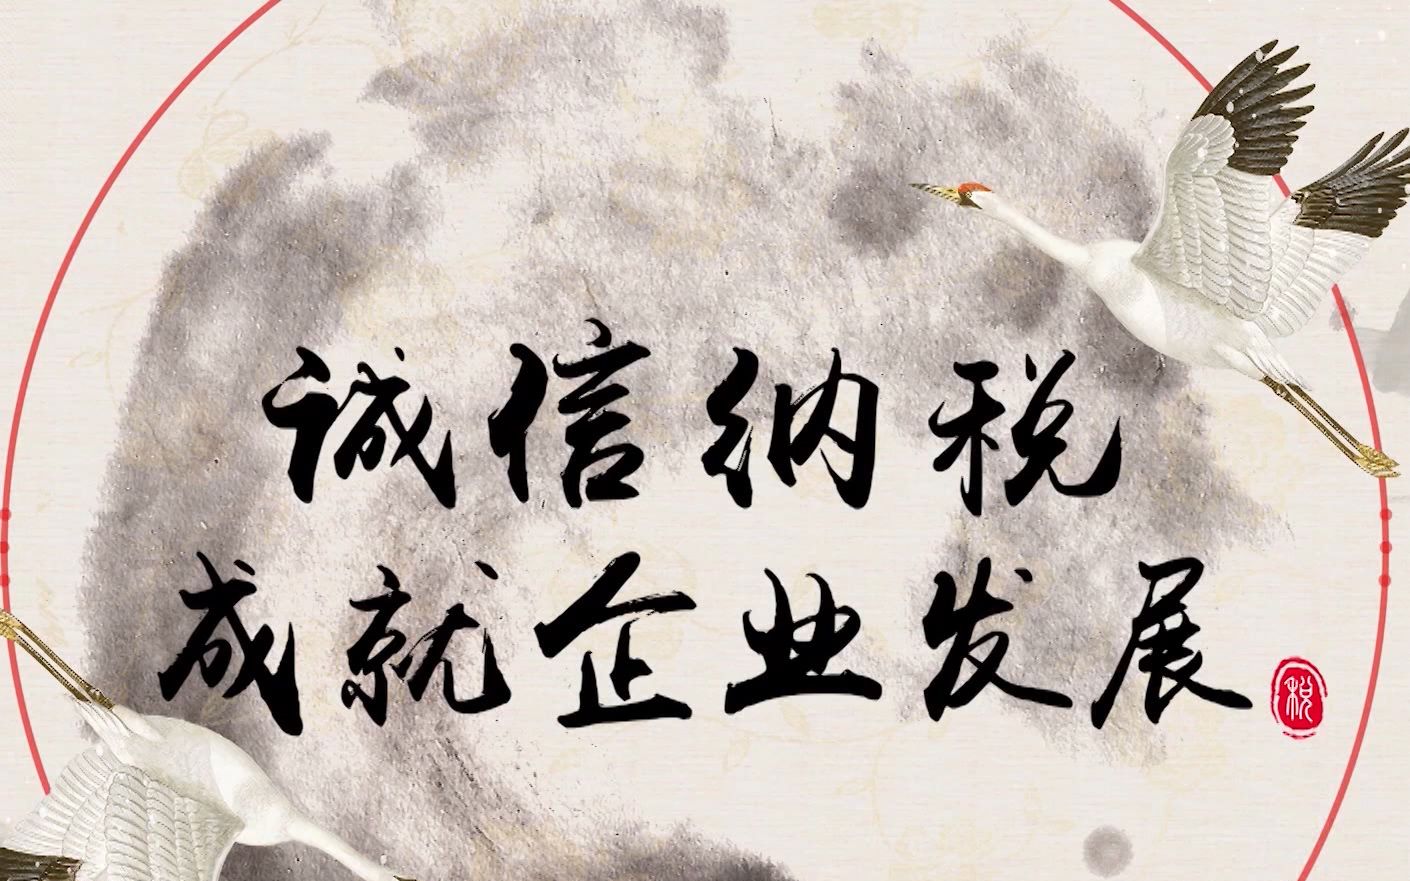 诚信纳税
成就企业发展
税